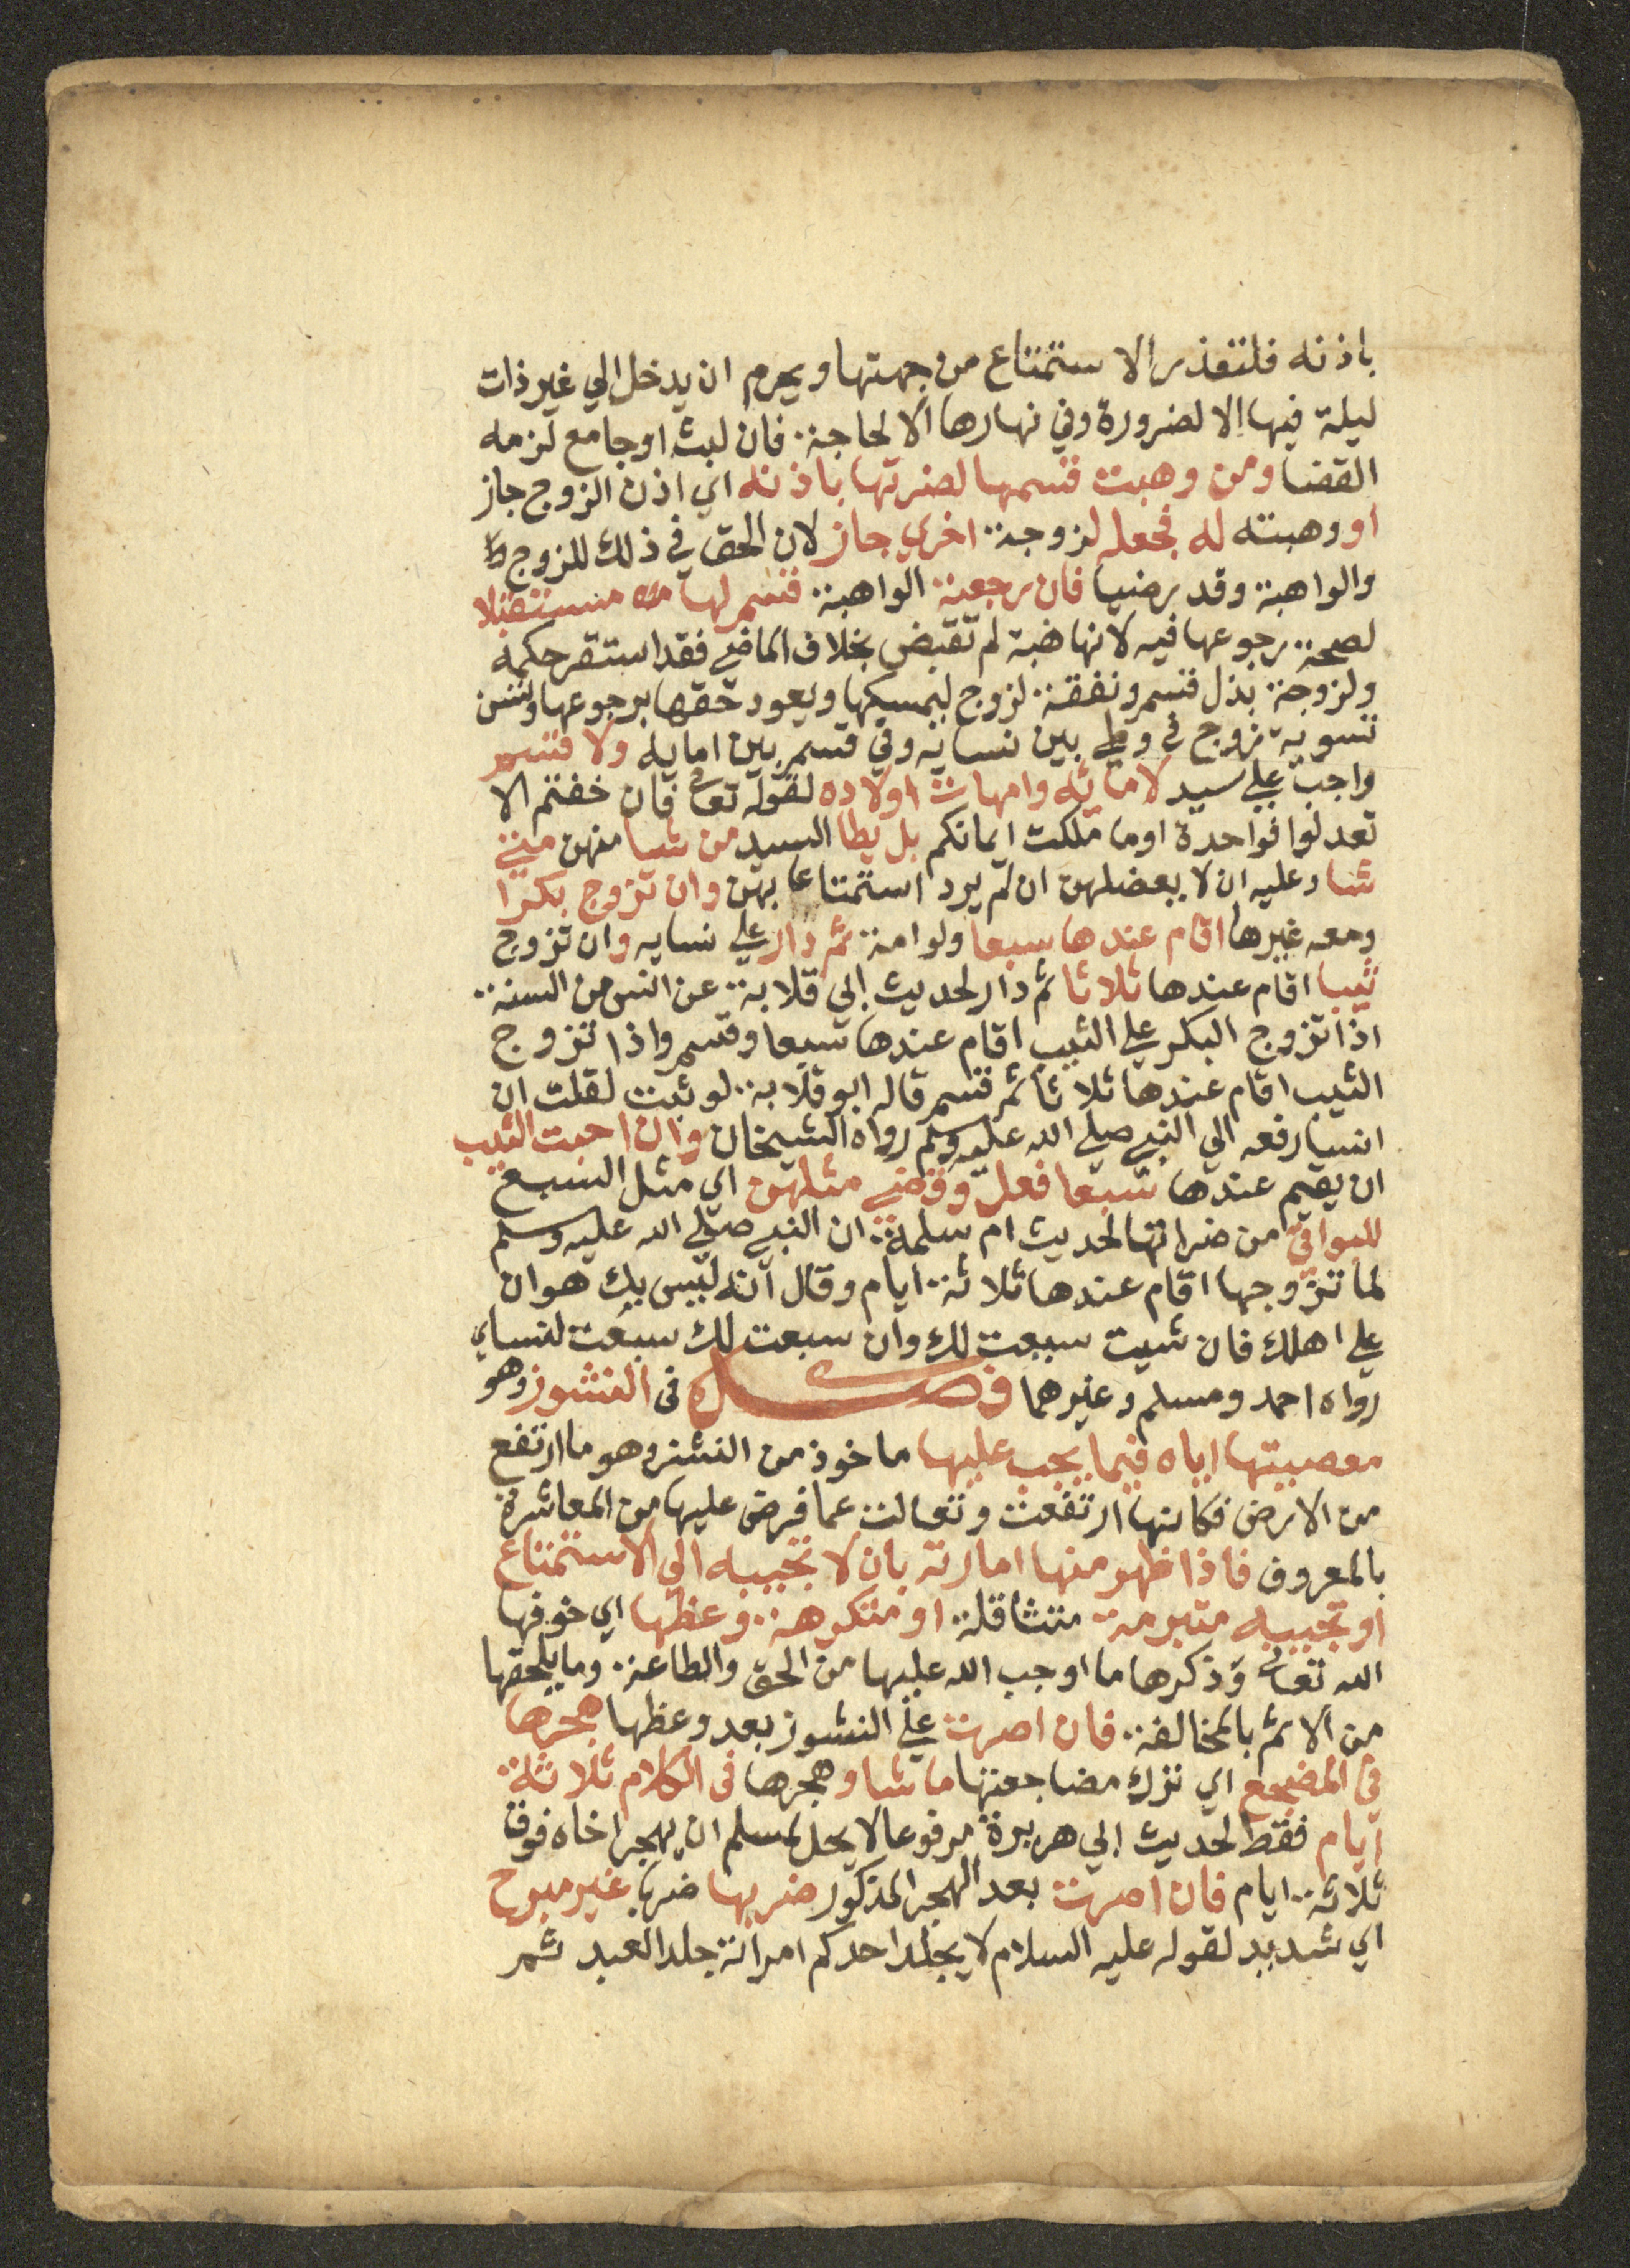 باذنه فلتعذر الاستمتاع من جهتها ويحرم ان يدخل الي غير ذات
ليلة فيها الا لضرورة وفي نهارها الا لحاجة فان لبث او جامع لزمه
القضا ومن وهبت قسمها لضرتها باذنه اي اذن الزوج جاز
او وهبته له فجعله لزوجة اخري جاز لان الحق في ذلك للزوج
والواهبة وقد رضيا فان رجعت الواهبة قسم لها مستقبلا
لصحة رجوعها فيه لانها هبة لم تقبض بخلاف الماضي فقد استقر حكمه
ولزوجة بذل قسم ونفقة لزوج ليمسكها ويعود حقها برجوعها وتسن
تسوية زوج في وطي بين نسايه وفي قسم بين امايه ولا قسم
واجب علي سيد لامائه وامهات اولاده لقوله تعالي فان خفتم الا
تعدلوا فواحدة او ما ملكت ايمانكم بل يطا السيد من شا منهن متي
شا وعليه ان لا يعضلهن ان لم يرد استمتاعا بهن وان تزوج بكرا
ومعه غيرها اقام عندها سبعا ولو امة ثم دار علي نسايه وان تزوج
ثيبا اقام عندها ثلاثا ثم دار لحديث ابي قلابة عن انس من السنة
اذا تزوج البكر علي الثيب اقام عندها سبعا وقسم واذا تزوج
الثيب اقام عندها ثلاثا ثم قسم قاله ابو قلابة لو شيت لقلت ان
انسا رفعه الي النبي صلي الله عليه وسلم رواه الشيخان وان احبت الثيب
ان يقيم عندها سبعا فعل وقضي مثلهن اي مثل السبع
للبواقي من ضراتها لحديث ام سلمة ان النبي صلي الله عليه وسلم
لما تزوجها اقام عندها ثلاثة ايام وقال انه ليس بك هوان
علي اهلك فان شيت سبعت لك وان سبعت لك سبعت لنساي
رواه احمد ومسلم وغيرهما فصل في النشوز وهو
معصيتها اياه فيما يجب عليها ماخوذ من النشز وهو ما ارتفع
من الارض فكانها ارتفعت وتعالت عما فرض عليها من المعاشرة
بالمعروف فاذا ظهر منها امارته بان لا تجيبه الي الاستمتاع
او تجيبه متبرمة متثاقلة او متكرهة وعظها اي خوفها
الله تعالي وذكرها ما اوجب الله عليها من الحق والطاعة وما يلحقها
من الاثم بالمخالفة فان اصرت علي النشوز بعد وعظها هجرها
في المضجع اي ترك مضاجعتها ما شا وهجرها في الكلام ثلاثة
ايام فقط لحديث ابي هريرة مرفوعا لا يحل لمسلم ان يهجر اخاه فوق
ثلاثة ايام فان اصرت بعد الهجر المذكور ضربها ضربا غير مبرح
اي شديد لقوله عليه السلام لا يجلد احدكم امراته جلد العبد ثم